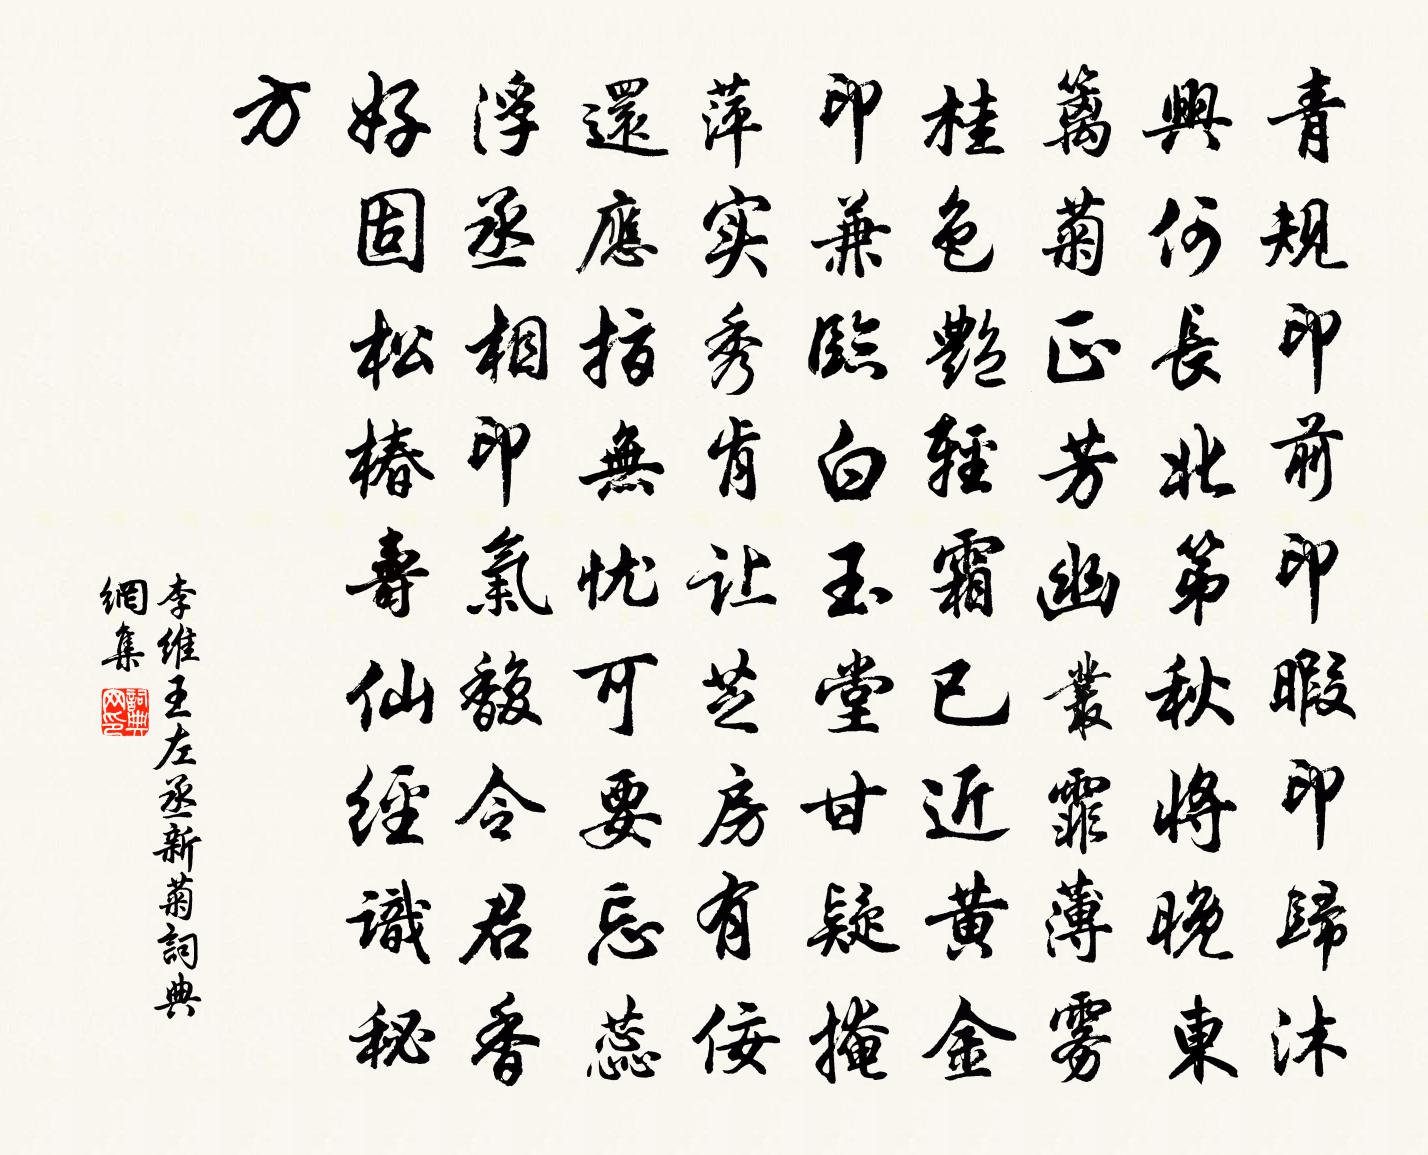 青規印前印暇印歸沐
興何長北第秋將晚東
籬菊正芳幽叢霏薄霧
桂色艷輕霜已近黄金
印兼臨白玉堂甘疑掩
萍实秀肯让芝房有佞
還應指無忧可要忘蕊
浮丞相印氣馥令君香
好固松椿壽仙經識秘
方
李维王左丞新菊詞典
網集
詞典网印